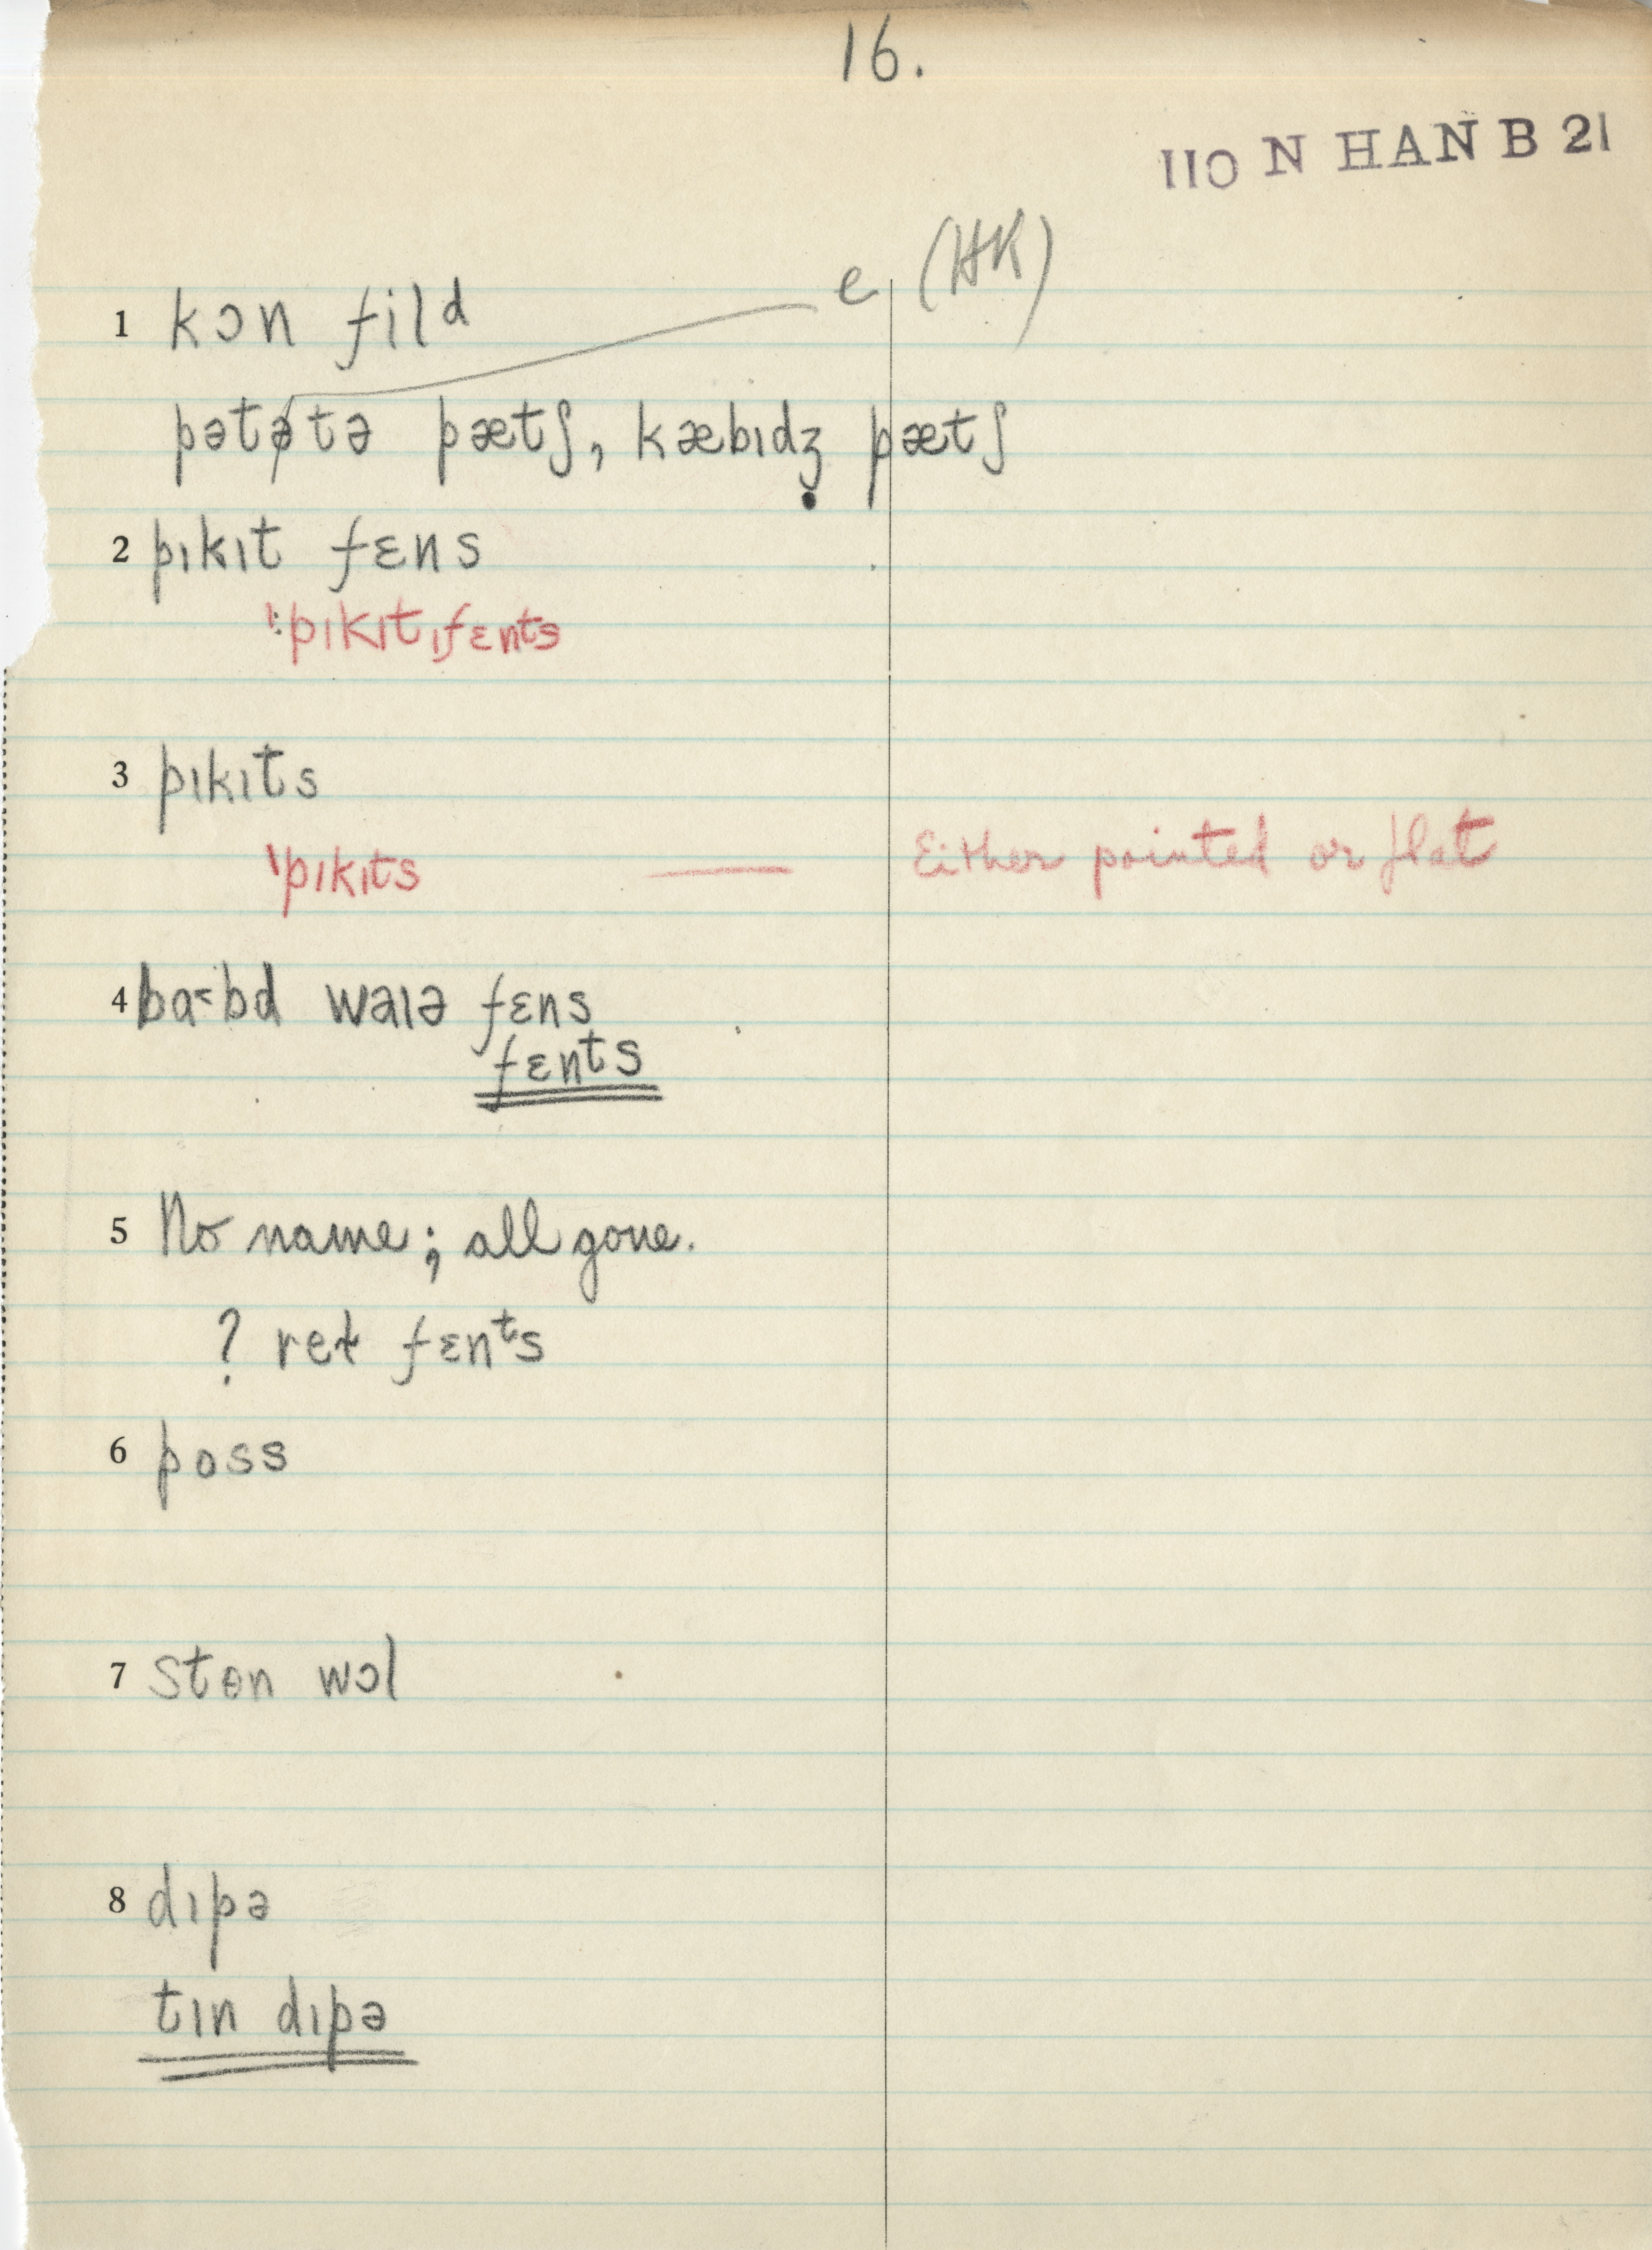 16.
110 N HAN B 21
e (HK)
1 kɔn filᵈ
pətətə pætʃ, kæbɪdʒ̣ pætʃ
2 pɪkɪt fɛns
ˈpɪkɪtˌfɛnts
3 pɪkɪts
ˈpɪkɪts — Either pointed or flat
4 ba˂bd waɪə fɛns
fɛnᵗs
5 No name; all gone.
? reɫ fɛnᵗs
6 poss
7 stɵn wɔl
8 dɪpə
tɪn dɪpə